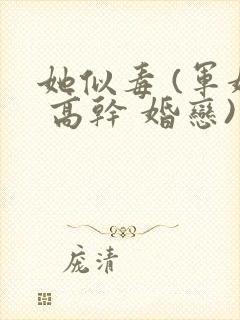 她似毒(軍婚
高幹 婚戀)
庞清